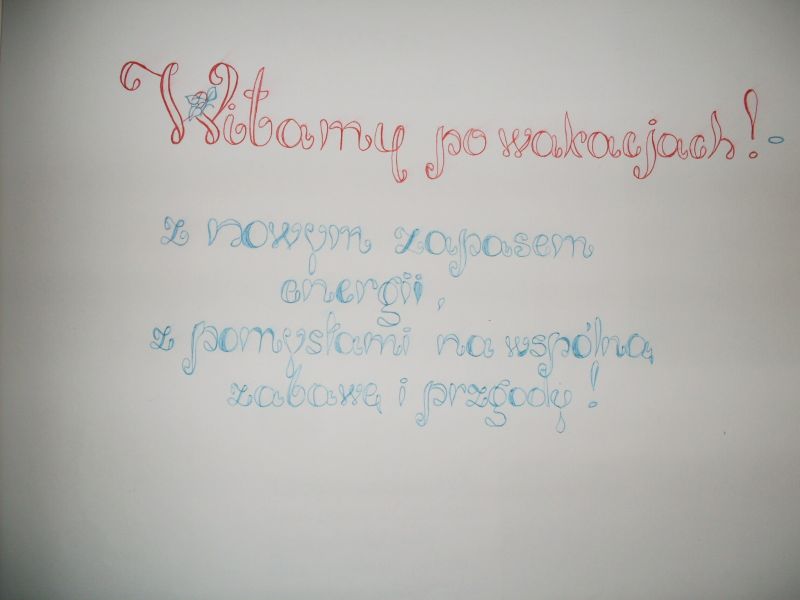 Witamy po wakacjach!
z nowym zapasem
energii,
z pomysłami na wspólną
zabawę i przygody!